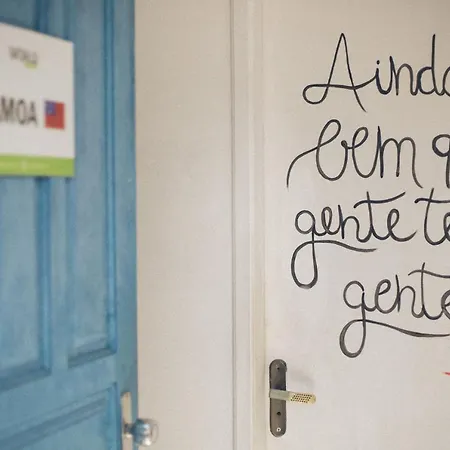 WORLD
MOA
Ainda
bem q
gente te
gente